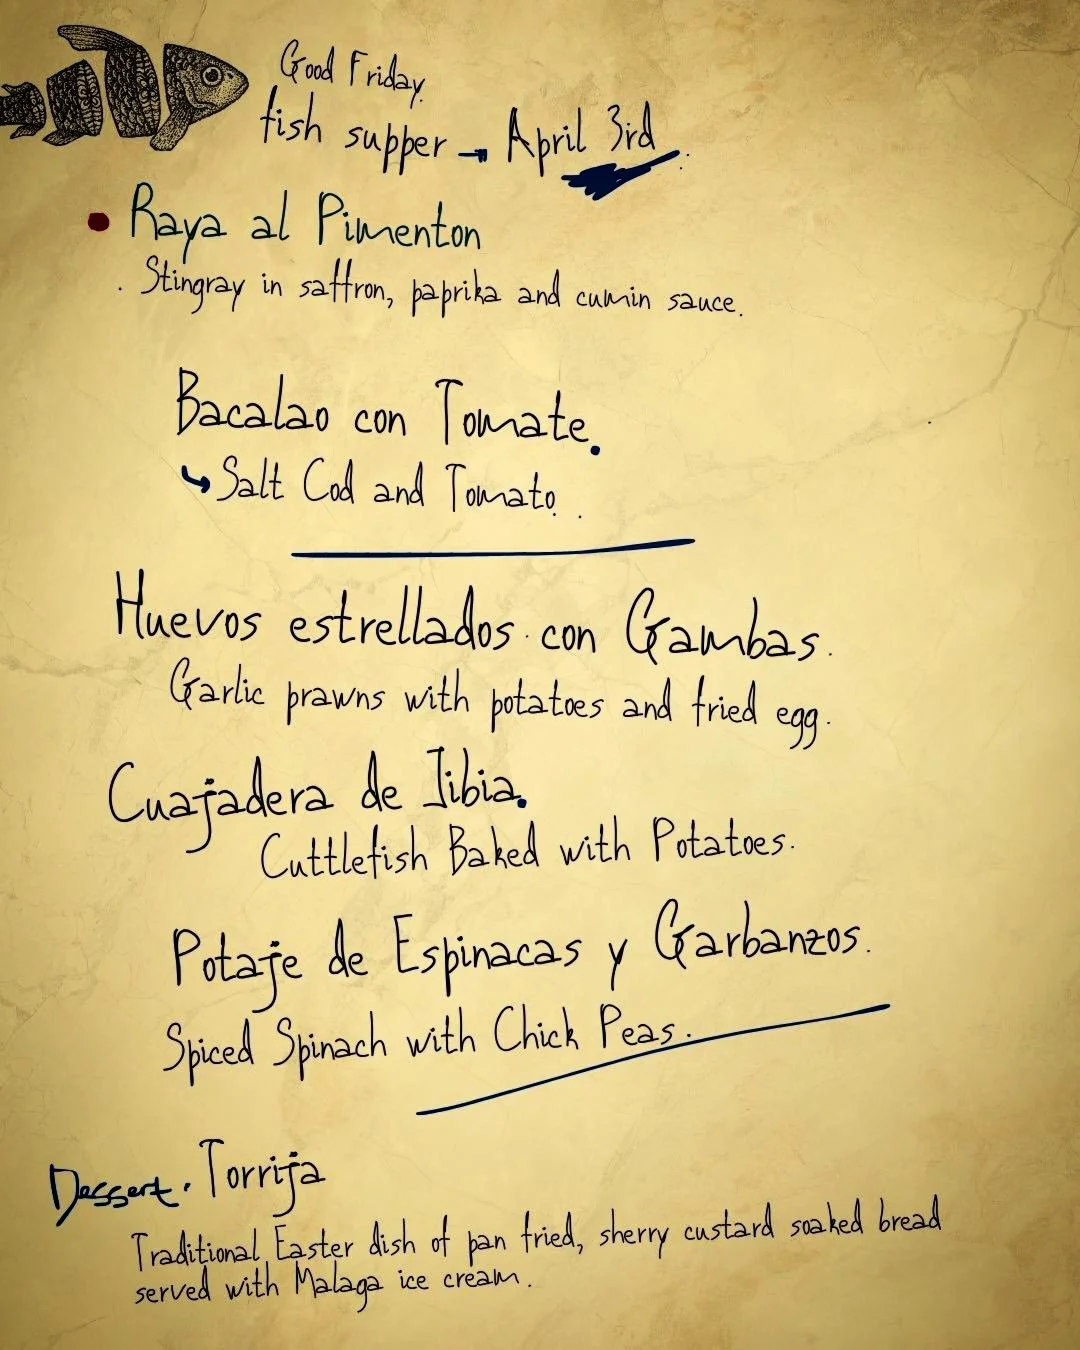 Good Friday.
fish supper → April 3rd
• Raya al Pimenton
. Stingray in saffron, paprika and cumin sauce.
Bacalao con Tomate.
↳ Salt Cod and Tomato.
Huevos estrellados con Gambas.
Garlic prawns with potatoes and fried egg.
Cuajadera de Jibia.
Cuttlefish Baked with Potatoes.
Potaje de Espinacas y Garbanzos.
Spiced Spinach with Chick Peas.
Dessert. Torrija
Traditional Easter dish of pan fried, sherry custard soaked bread
served with Malaga ice cream.